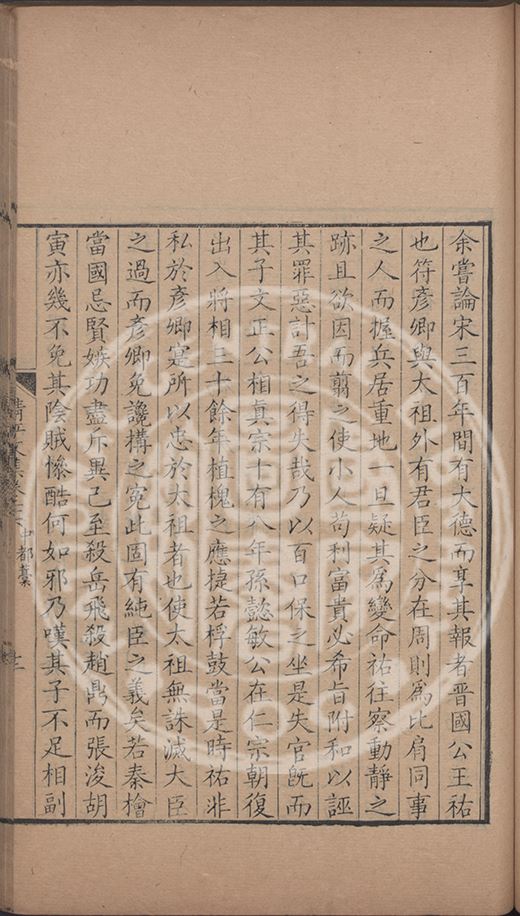 余嘗論宋三百年間有大德而享其報者晉國公王祐
也符彥卿與太祖外有君臣之分在周則爲比肩同事
之人而握兵居重地一旦疑其爲變命祐往察動靜之
跡且欲因而翦之使小人苟利富貴必希旨附和以誣
其罪惡計吾之得失哉乃以百口保之坐是失官旣而
其子文正公相眞宗十有八年孫懿敏公在仁宗朝復
出入將相三十餘年植槐之應捷若桴鼓當是時祐非
私於彥卿寔所以忠於太祖者也使太祖無誅滅大臣
之過而彥卿免讒構之冤此固有純臣之義矣若秦檜
當國忌賢嫉功盡斥異己至殺岳飛殺趙鼎而張浚胡
寅亦幾不免其陰賊慘酷何如邪乃嘆其子不足相副
中都藁